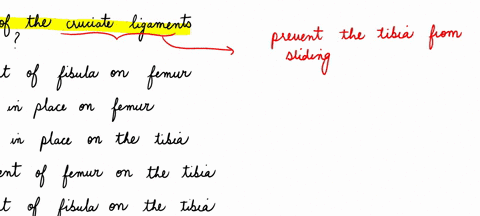 of the cruciate ligaments
?
prevent the tibia from
sliding
t of fibula on femur
in place on femur
in place on the tibia
ent of femur on the tibia
t of fibula on the tibia